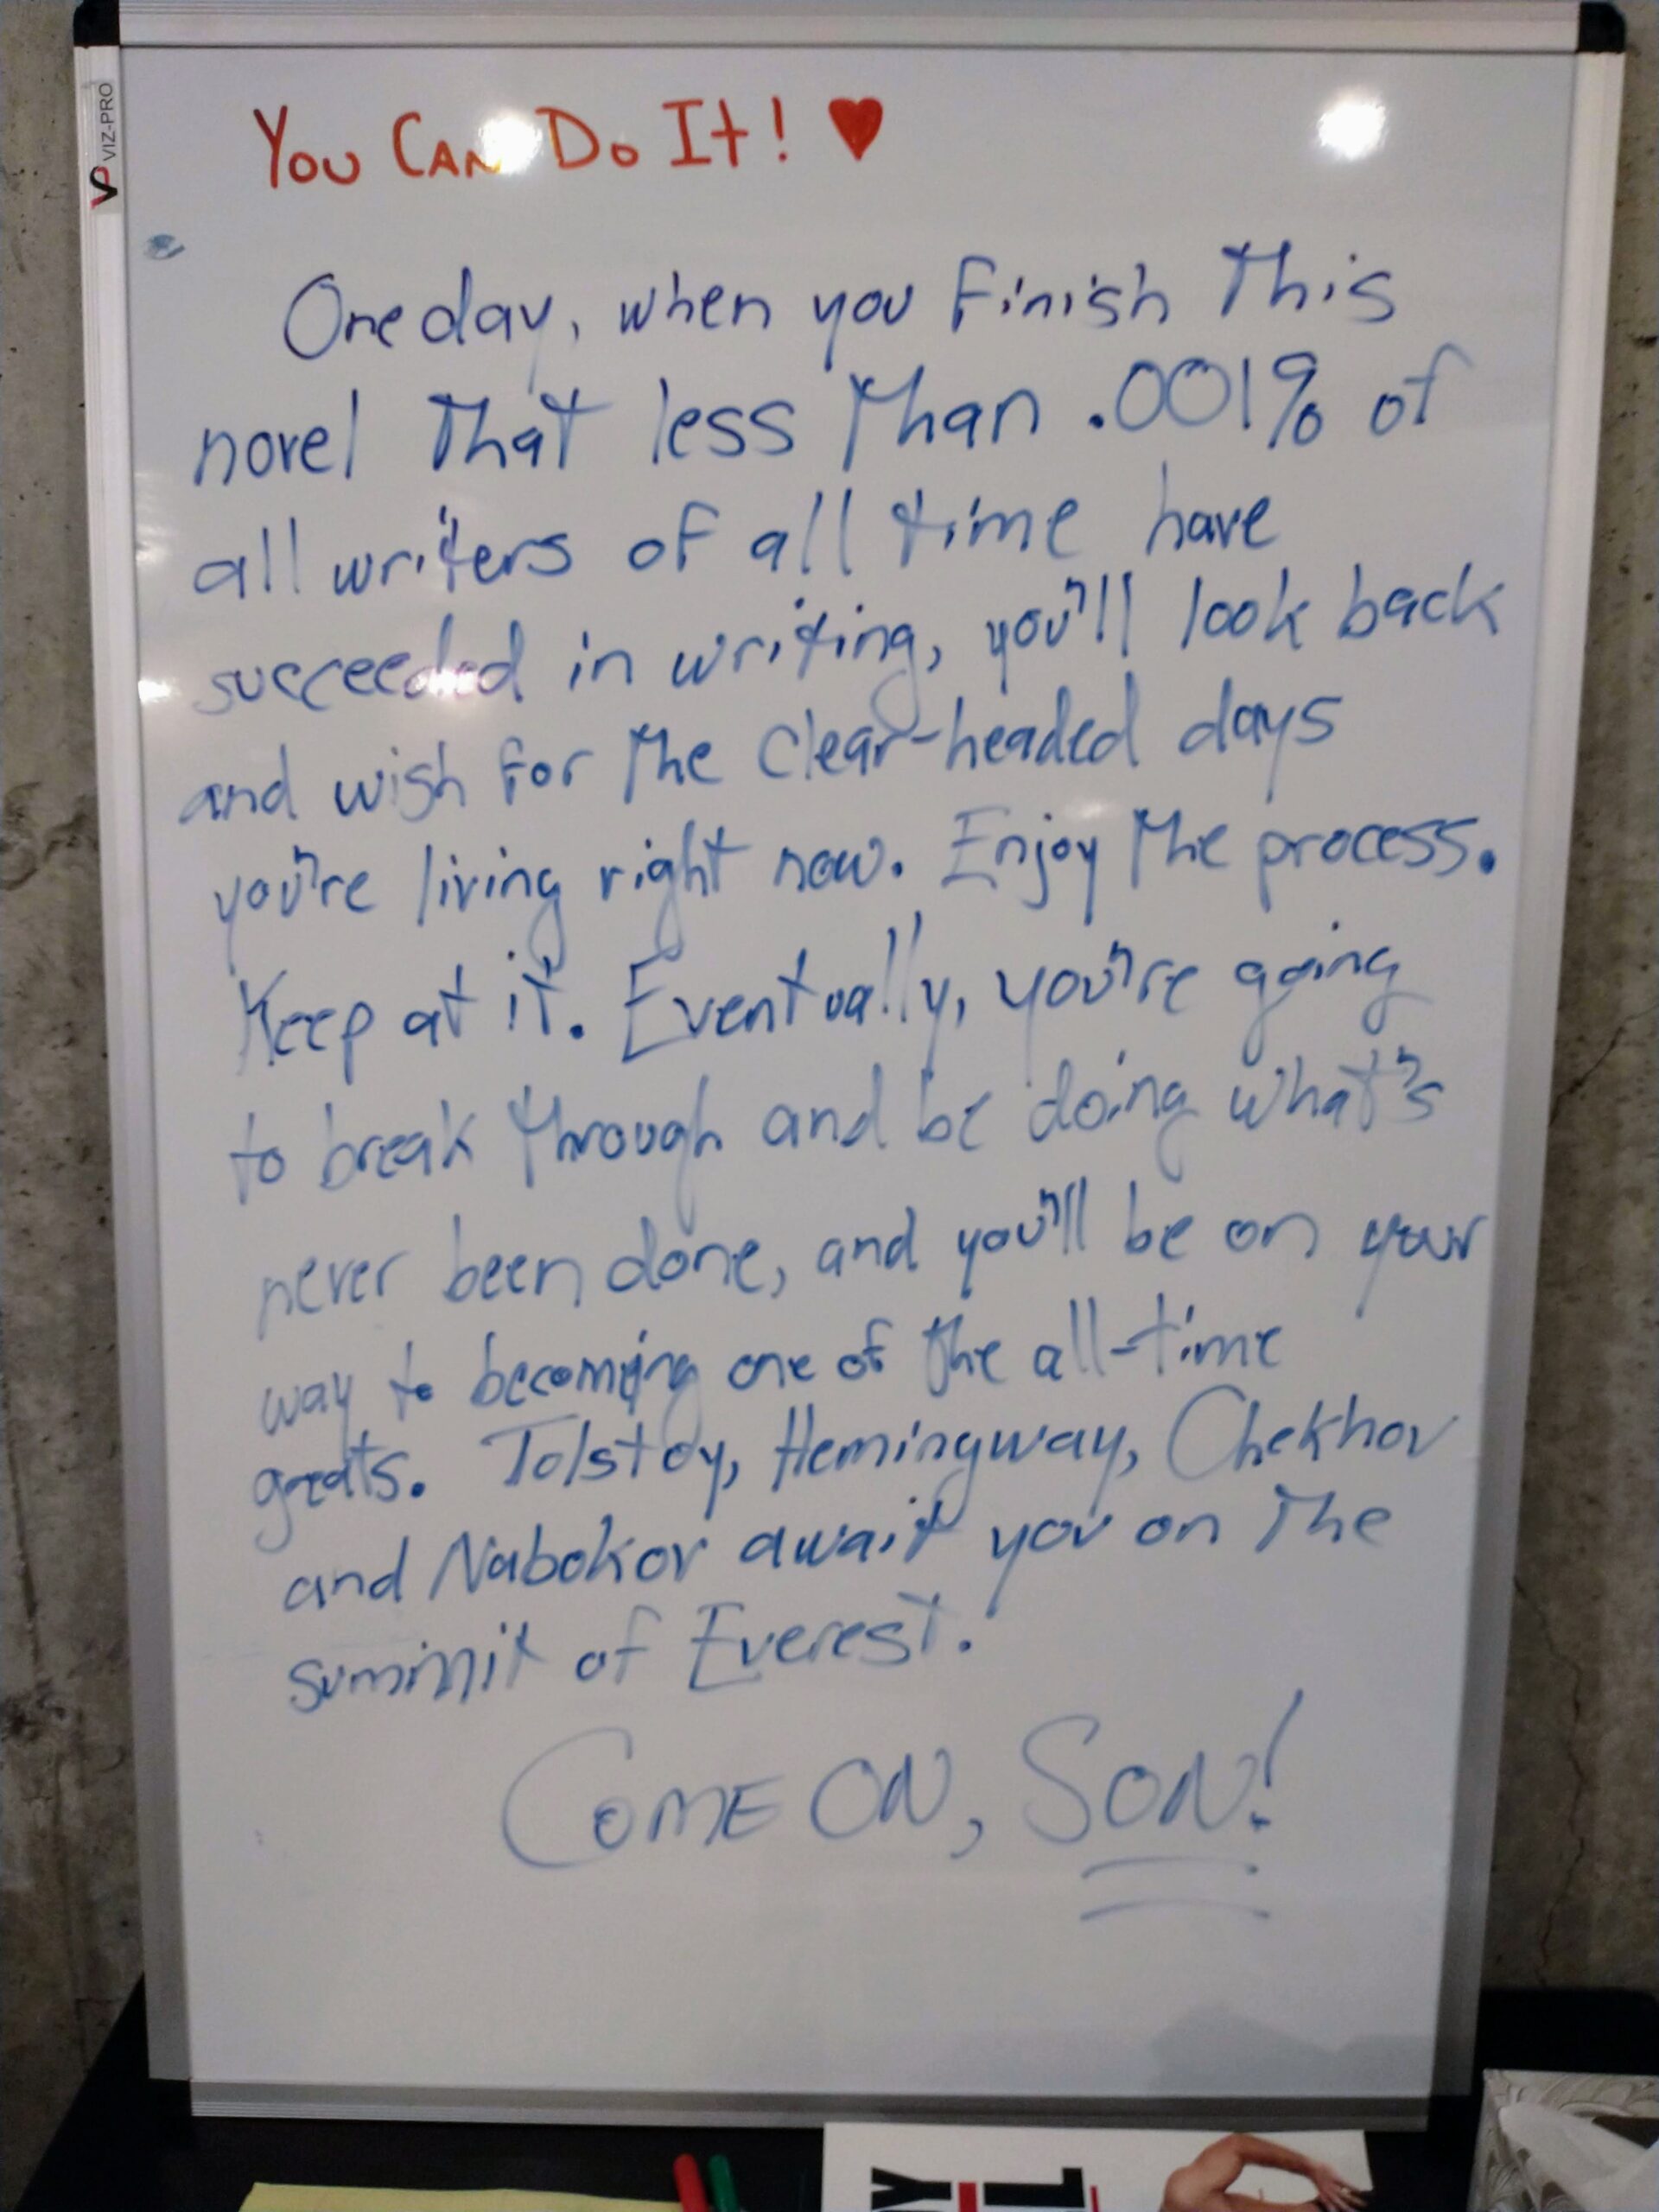 VIZ-PRO
You Can Do It! ♥
One day, when you finish this
novel that less than .001% of
all writers of all time have
succeeded in writing, you'll look back
and wish for the clear-headed days
you're living right now. Enjoy the process.
Keep at it. Eventually, you're going
to break through and be doing what's
never been done, and you'll be on your
way to becoming one of the all-time
greats. Tolstoy, Hemingway, Chekhov
and Nabokov await you on the
summit of Everest.
COME ON, SON!